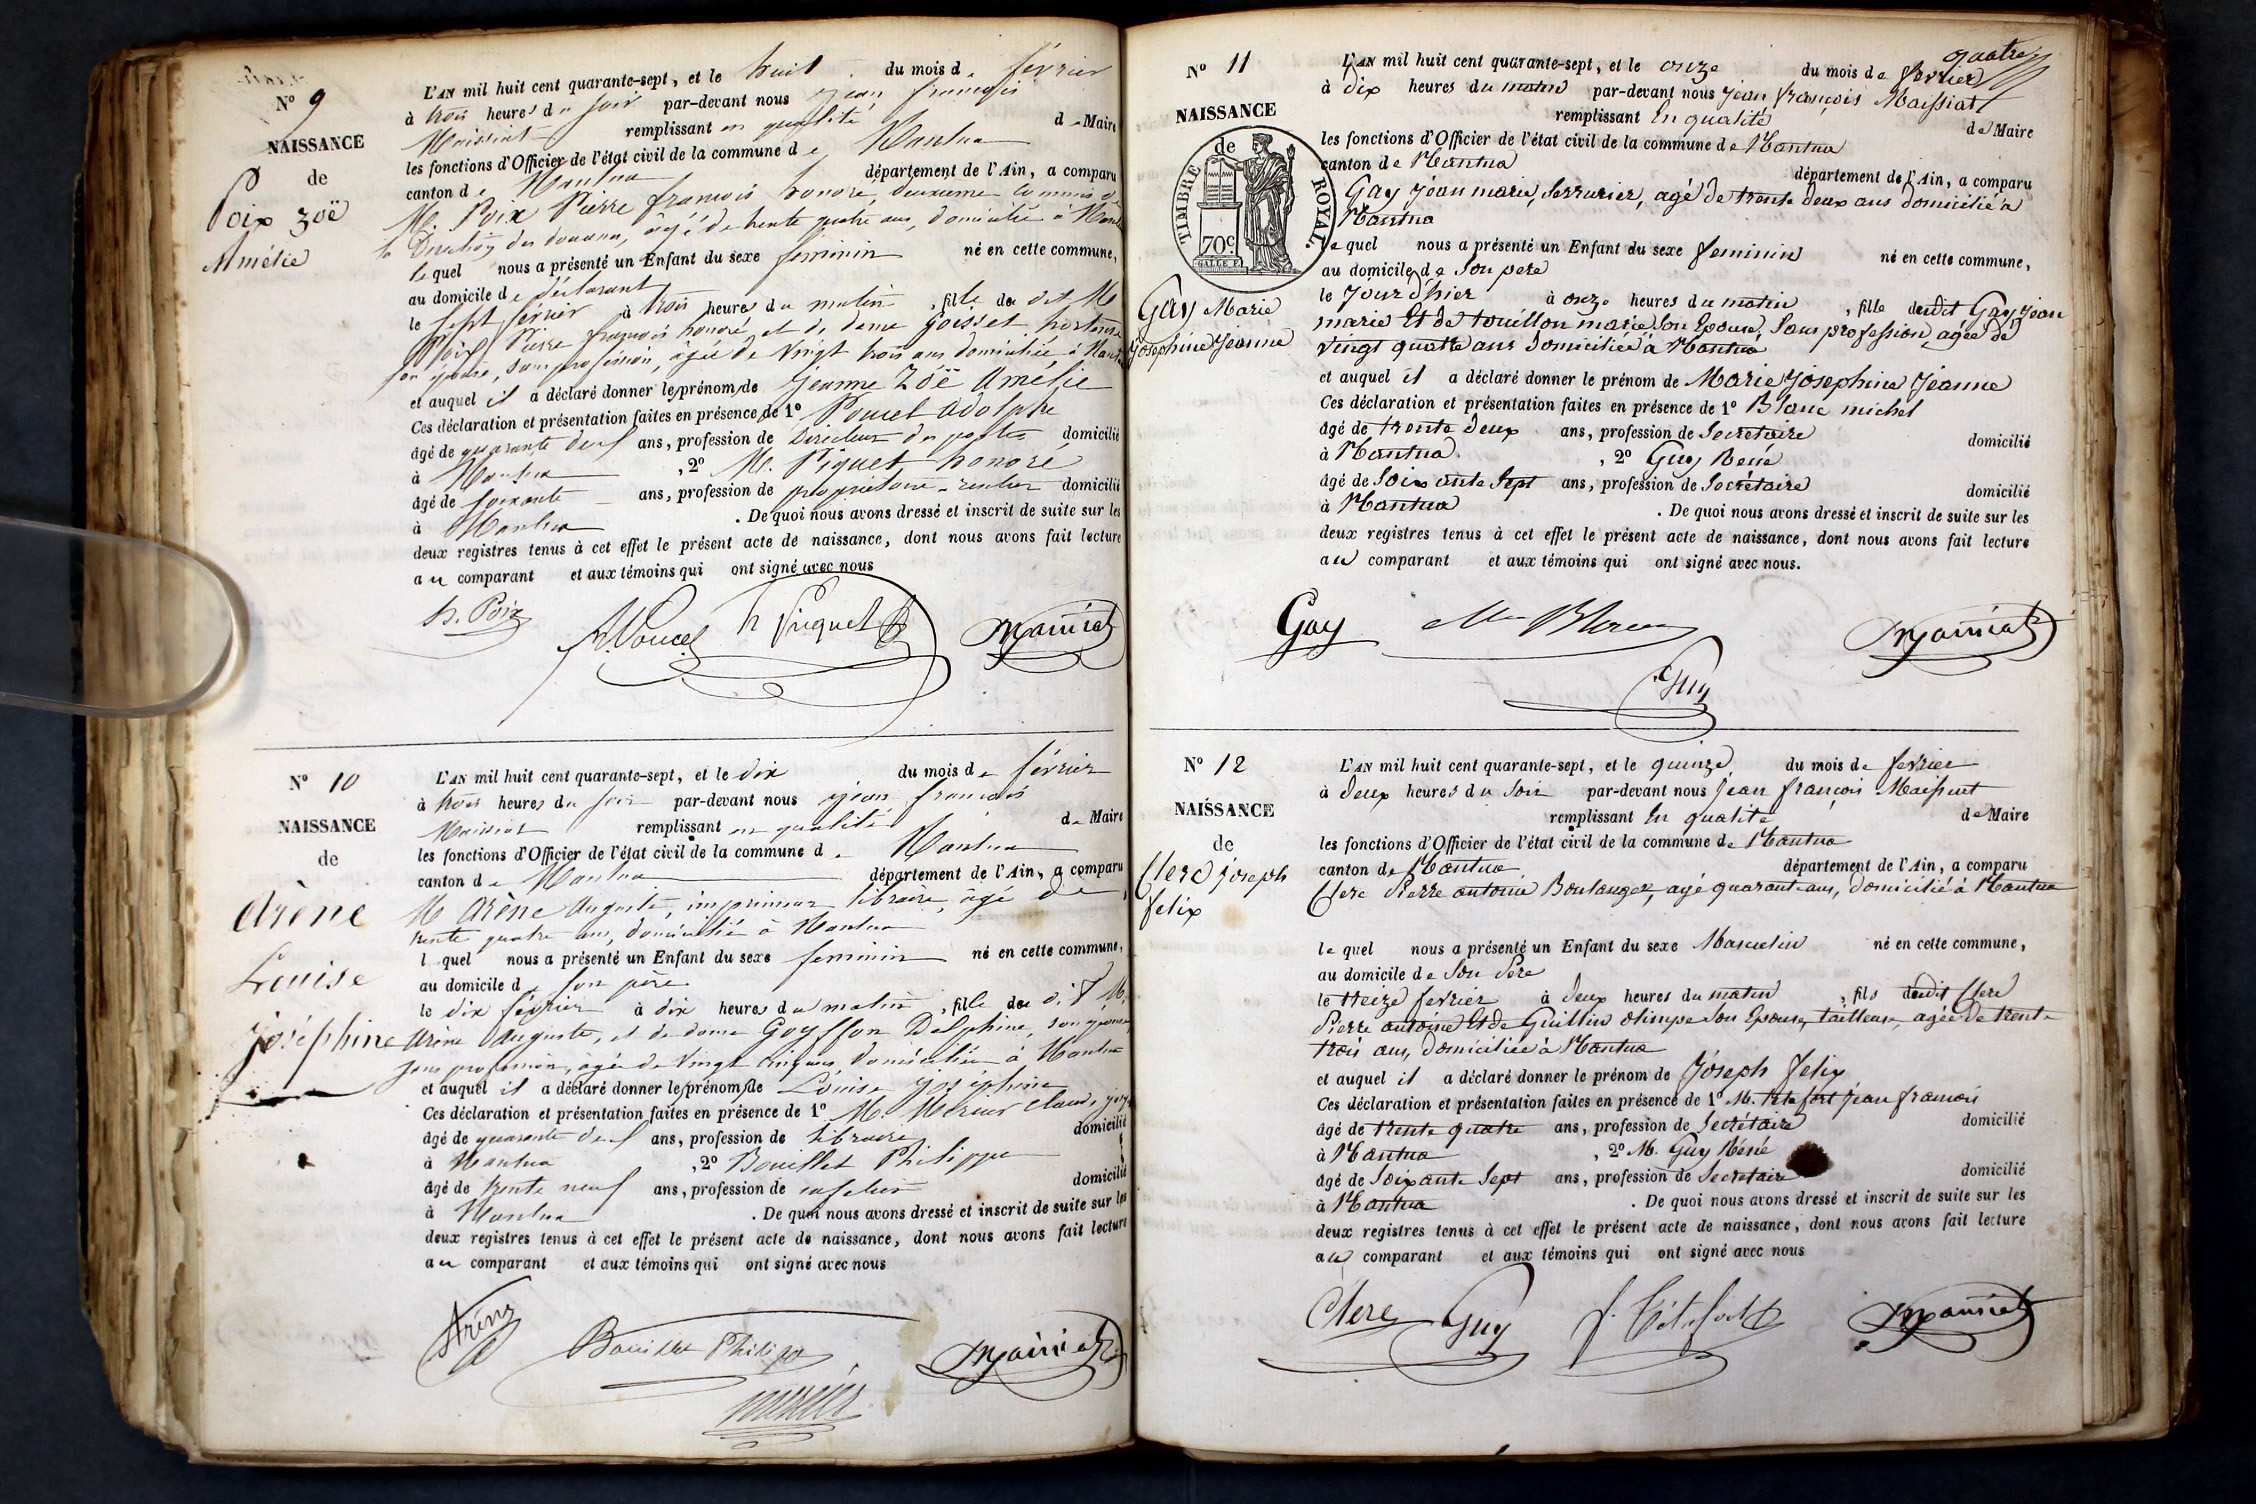 N° 9
NAISSANCE
de
Poix Zoë
Amélie
L'AN mil huit cent quarante-sept, et le huit du mois de février
à trois heures du soir par-devant nous jean françois
Maissiat remplissant en qualité de Maire
les fonctions d'Officier de l'état civil de la commune de Mantua
canton de Mantua département de l'Ain, a comparu
M. Poix Pierre françois honoré, deuxieme commis de
la Direction des douanes, âgé de trente quatre ans, domicilié à
le quel nous a présenté un Enfant du sexe feminin né en cette commune,
au domicile de déclarant
le sept février à trois heures du matin, fille du dit M.
Poix Pierre françois honoré, et de dame Goisset hortense
son épouse, sans profession, âgée de vingt trois ans domiciliée à
et auquel il a déclaré donner les prénoms de Jeanne Zoë Amélie
Ces déclaration et présentation faites en présence de 1° Poucet Adolphe
âgé de quarante deux ans, profession de Directeur des postes domicilié
à Mantua, 2° M. Piquet honoré
âgé de soixante ans, profession de propriétaire rentier domicilié
à Mantua. De quoi nous avons dressé et inscrit de suite sur les
deux registres tenus à cet effet le présent acte de naissance, dont nous avons fait lecture
au comparant et aux témoins qui ont signé avec nous
h. Poix A. Poucet h Piquet Maissiat
N° 10
NAISSANCE
de
Arène
Louise
Joséphine
L'AN mil huit cent quarante-sept, et le dix du mois de février
à trois heures du soir par-devant nous jean françois
Maissiat remplissant en qualité de Maire
les fonctions d'Officier de l'état civil de la commune de Mantua
canton de Mantua département de l'Ain, a comparu
M Arène Auguste, imprimeur libraire, âgé de
trente quatre ans, domicilié à Mantua
l quel nous a présenté un Enfant du sexe feminin né en cette commune,
au domicile d son père
le dix février à dix heures du matin, fille du dit M.
Arène Auguste, et de dame Goyffon Delphine, son épouse
sans profession, âgée de vingt cinq ans, domiciliée à Mantua
et auquel il a déclaré donner les prénoms de Louise joséphine
Ces déclaration et présentation faites en présence de 1° M. Mercier claude
âgé de quarante deux ans, profession de libraire domicilié
à Mantua, 2° Bouillet Philippe
âgé de trente neuf ans, profession de domicilié
à Mantua. De quoi nous avons dressé et inscrit de suite sur les
deux registres tenus à cet effet le présent acte de naissance, dont nous avons fait lecture
au comparant et aux témoins qui ont signé avec nous
Arène Bouillet Philippe Maissiat
mercier
quatre
N° 11
NAISSANCE
de
TIMBRE ROYAL.
70c
GALLE F.
Gay Marie
Josephine Jeanne
L'AN mil huit cent quarante-sept, et le onze du mois de fevrier
à dix heures du matin par-devant nous jean françois Maissiat
remplissant En qualité de Maire
les fonctions d'Officier de l'état civil de la commune de Mantua
canton de Mantua département de l'Ain, a comparu
Gay jean marie, serrurier, agé de trente deux ans domicilié à
Mantua
le quel nous a présenté un Enfant du sexe feminin né en cette commune,
au domicile de son pere
le jour d'hier à onze heures du matin, fille dudit Gay jean
marie Et de touillon marie son Epouse, sans profession, agée de
vingt quatre ans domiciliée à Mantua
et auquel il a déclaré donner le prénom de Marie josephine jeanne
Ces déclaration et présentation faites en présence de 1° Blanc michel
âgé de trente deux ans, profession de Secretaire domicilié
à Mantua, 2° Guy René
âgé de soixante sept ans, profession de Secrétaire domicilié
à Mantua. De quoi nous avons dressé et inscrit de suite sur les
deux registres tenus à cet effet le présent acte de naissance, dont nous avons fait lecture
au comparant et aux témoins qui ont signé avec nous.
Gay Blanc Maissiat
Guy
N° 12
NAISSANCE
de
Clerc joseph
felix
L'AN mil huit cent quarante-sept, et le quinze du mois de fevrier
à deux heures du soir par-devant nous jean françois Maissiat
remplissant En qualité de Maire
les fonctions d'Officier de l'état civil de la commune de Mantua
canton de Mantua département de l'Ain, a comparu
Clerc Pierre antoine Boulanger, agé quarante ans, domicilié à Mantua
le quel nous a présenté un Enfant du sexe Masculin né en cette commune,
au domicile de son Pere
le treize fevrier à deux heures du matin, fils dudit Clerc
Pierre antoine Et de Guillin olimpe son Epouse, tailleuse, agée de trente
trois ans, domiciliée à Mantua
et auquel il a déclaré donner le prénom de joseph felix
Ces déclaration et présentation faites en présence de 1° M. Tetafort jean françois
âgé de trente quatre ans, profession de Secrétaire domicilié
à Mantua, 2° M. Guy Réné
âgé de soixante sept ans, profession de Secretaire domicilié
à Mantua. De quoi nous avons dressé et inscrit de suite sur les
deux registres tenus à cet effet le présent acte de naissance, dont nous avons fait lecture
au comparant et aux témoins qui ont signé avec nous
Clerc Guy Maissiat